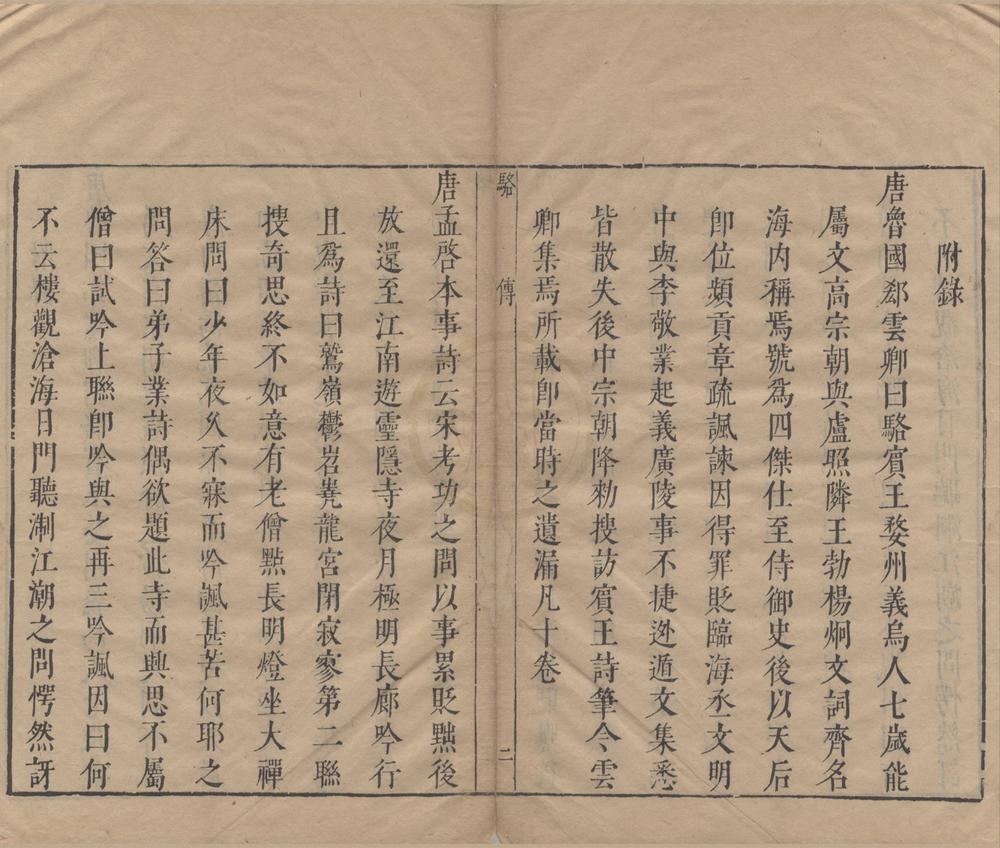 附錄
唐魯國郄雲卿曰駱賓王婺州義烏人七歲能
屬文高宗朝與盧照隣王勃楊烱文詞齊名
海内稱焉號爲四傑仕至侍御史後以天后
卽位頻貢章疏諷諫因得罪貶臨海丞文明
中與李敬業起義廣陵事不捷迯遁文集悉
皆散失後中宗朝降勑搜訪賔王詩筆令雲
卿集焉所載卽當時之遺漏凡十卷
駱 傳 二
唐孟啓本事詩云宋考功之問以事累貶黜後
放還至江南遊靈隱寺夜月極明長廊吟行
且爲詩曰鷲嶺鬱岧嶤龍宮閉寂寥第二聯
搜奇思終不如意有老僧㸃長明燈坐大禪
床問曰少年夜乆不寐而吟諷甚苦何耶之
問答曰弟子業詩偶欲題此寺而興思不屬
僧曰試吟上聯卽吟與之再三吟諷因曰何
不云樓觀滄海日門聽淛江潮之問愕然訝